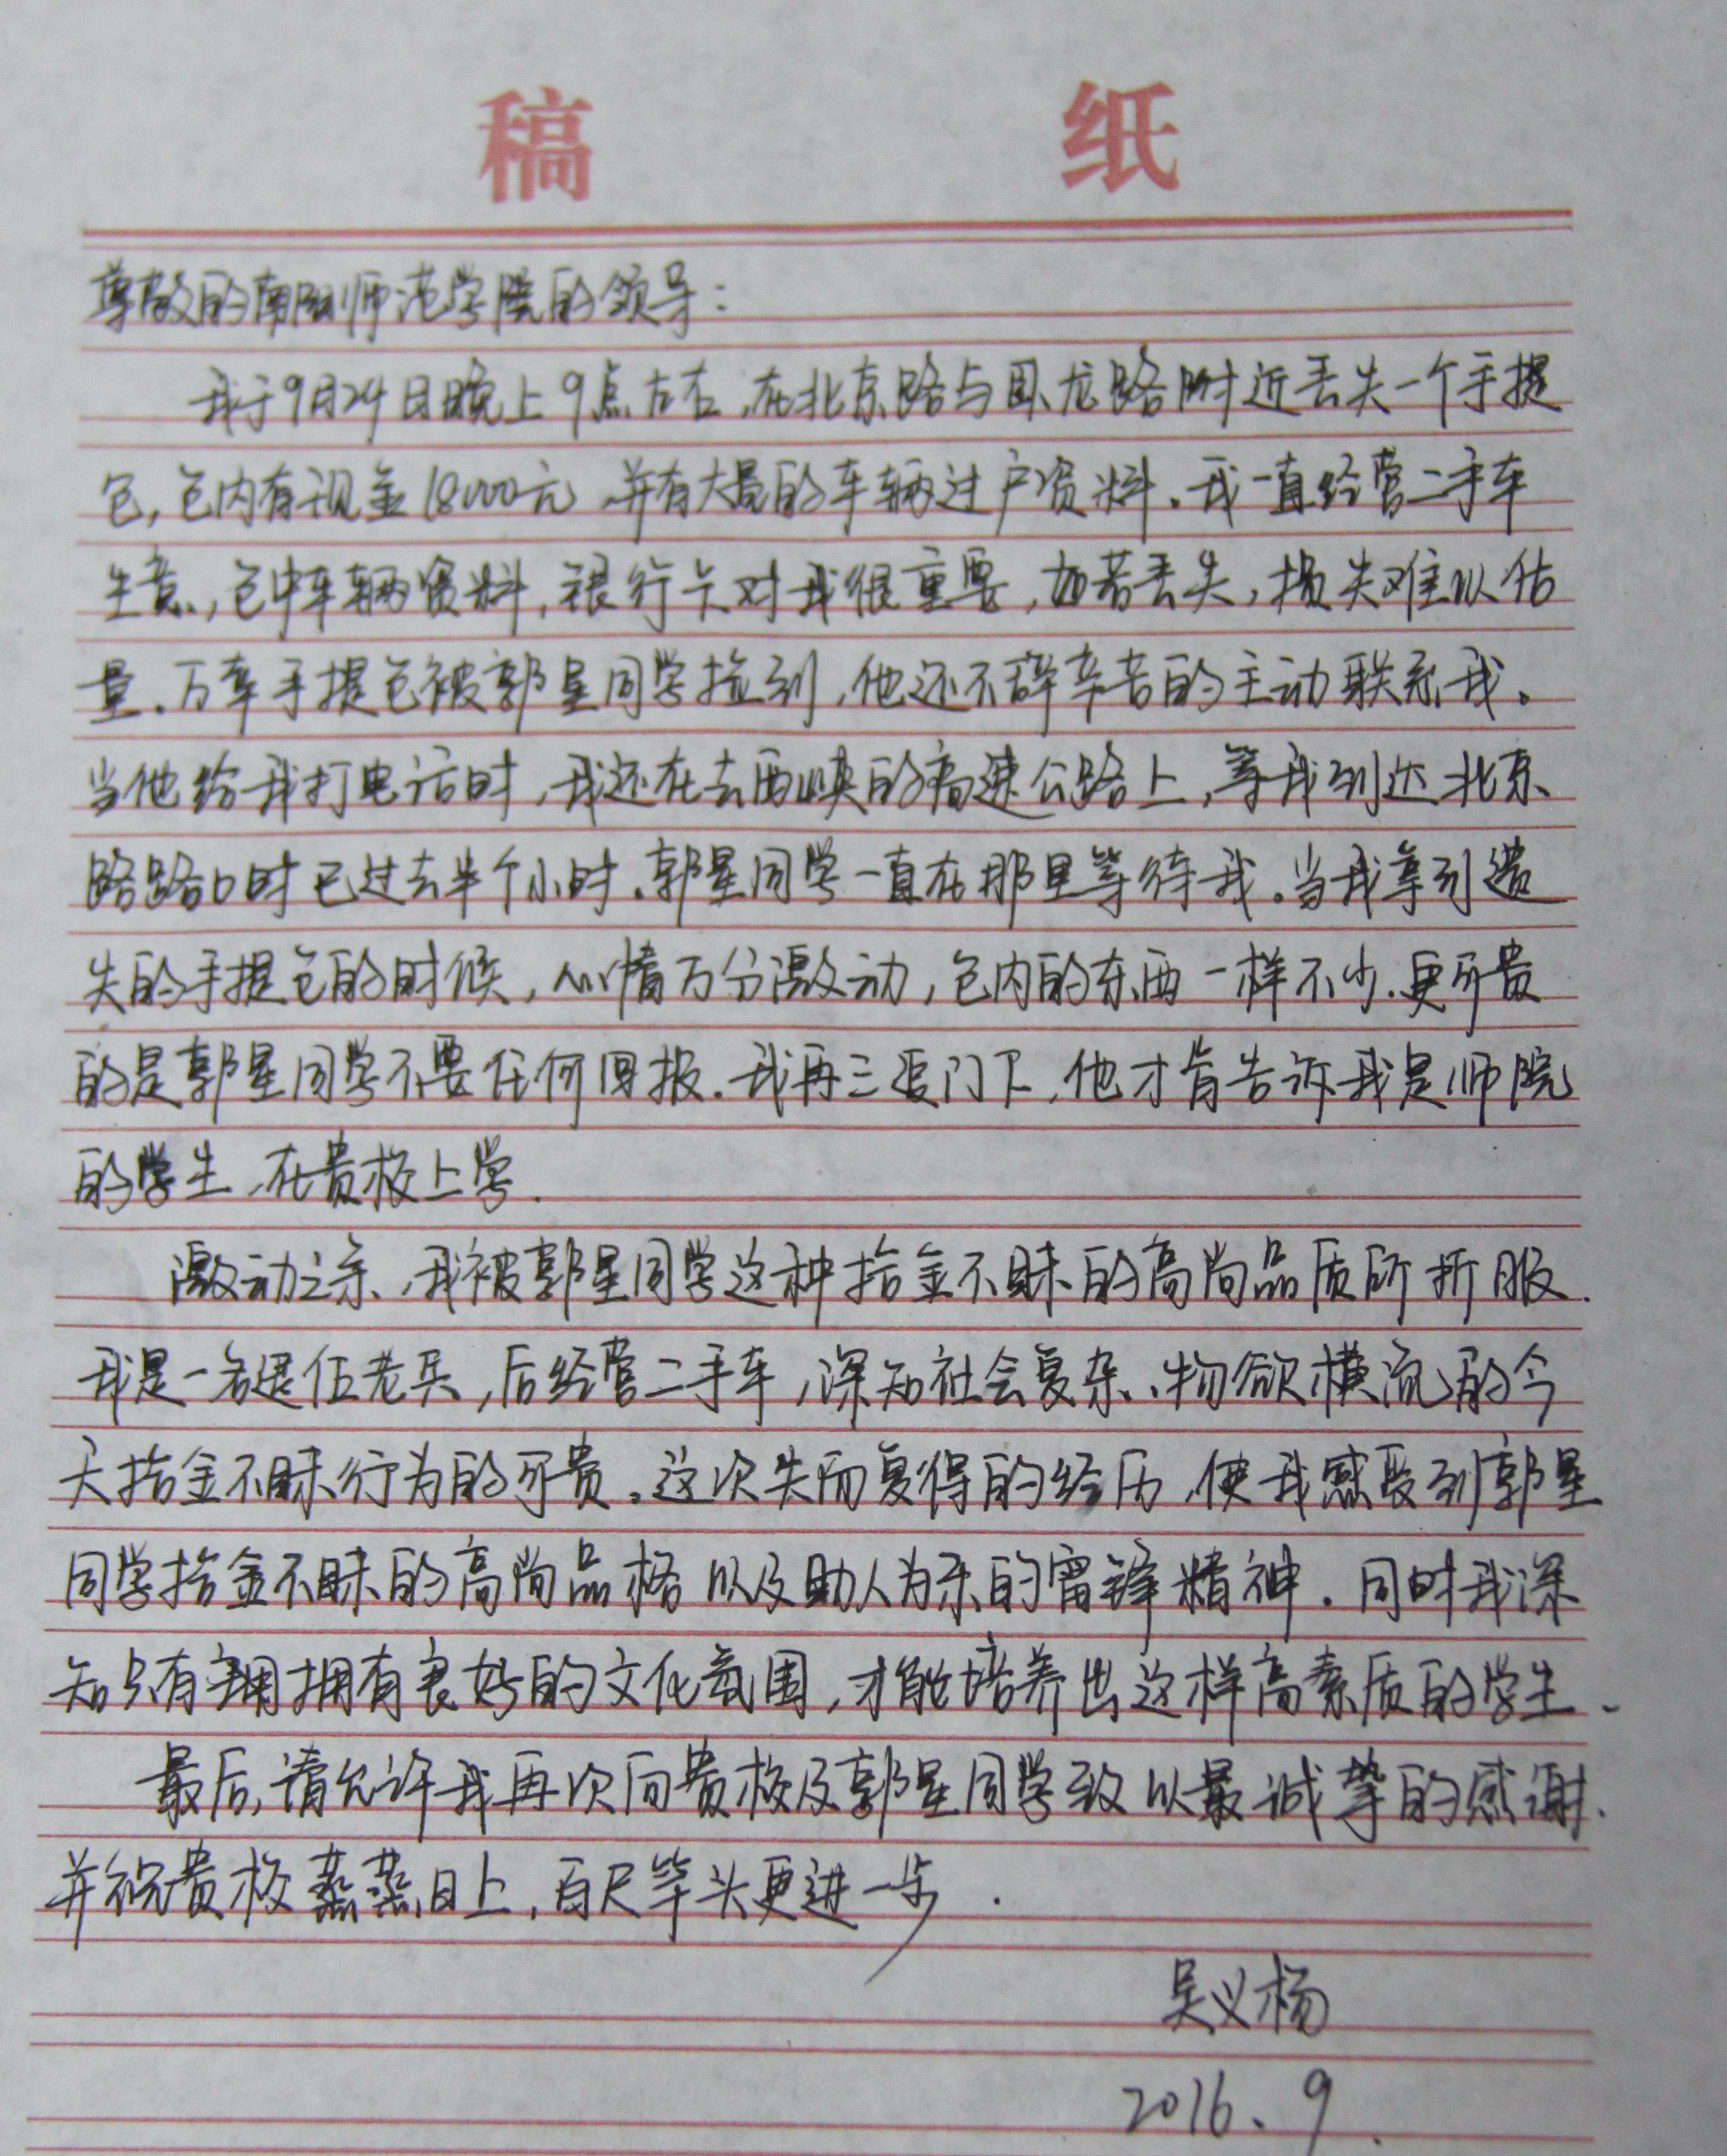 稿 纸
尊敬的南阳师范学院的领导：
我于9月24日晚上9点左右，在北京路与卧龙路附近丢失一个手提
包，包内有现金18000元，并有大量的车辆过户资料。我一直经营二手车
生意，包中车辆资料，银行卡对我很重要，如若丢失，损失难以估
量。万幸手提包被郭星同学捡到，他还不辞辛苦的主动联系我。
当他给我打电话时，我还在去西峡的高速公路上，等我到达北京
路路口时已过去半个小时。郭星同学一直在那里等待我。当我拿到遗
失的手提包的时候，心情万分激动，包内的东西一样不少。更可贵
的是郭星同学不要任何回报。我再三追问下，他才肯告诉我是师院
的学生，在贵校上学。
激动之余，我被郭星同学这种拾金不昧的高尚品质所折服。
我是一名退伍老兵，后经营二手车，深知社会复杂、物欲横流的今
天拾金不昧行为的可贵。这次失而复得的经历，使我感受到郭星
同学拾金不昧的高尚品格以及助人为乐的雷锋精神。同时我深
知只有拥有良好的文化氛围，才能培养出这样高素质的学生、
最后，请允许我再次向贵校及郭星同学致以最诚挚的感谢。
并祝贵校蒸蒸日上，百尺竿头更进一步。
吴义杨
2016、9.